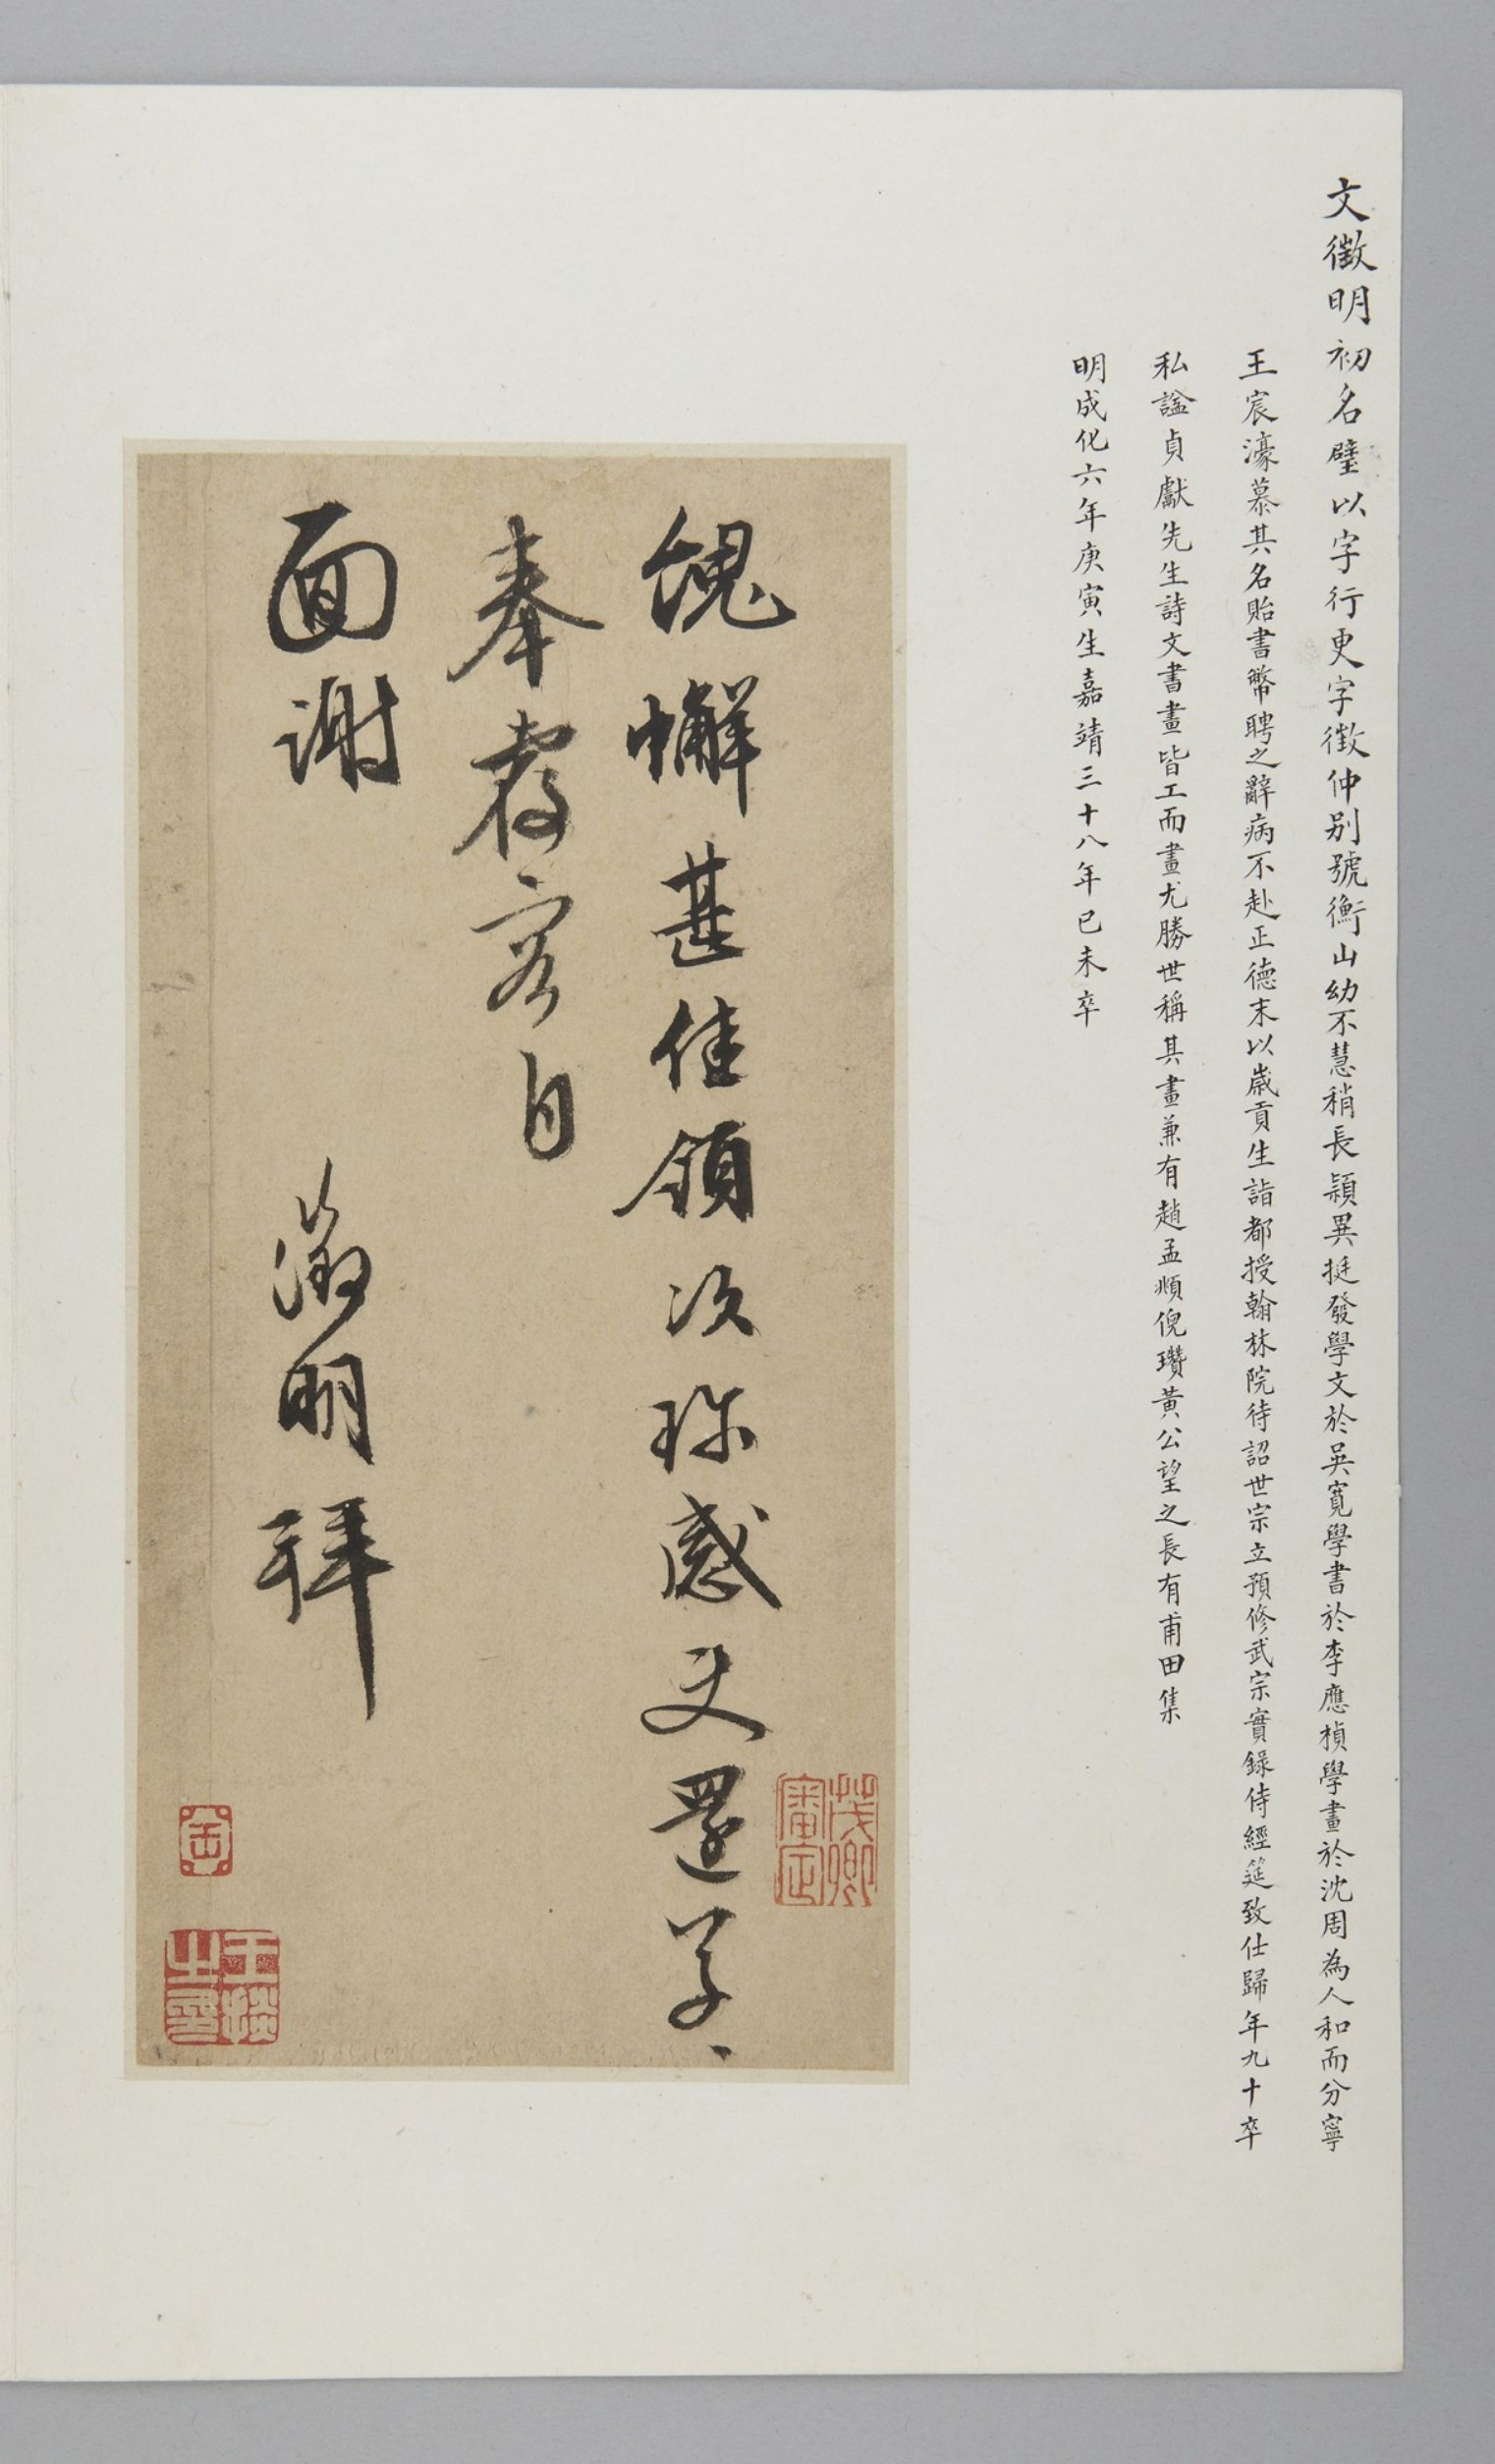 文徵明初名璧以字行更字徵仲别號衡山幼不慧稍長穎異挺發學文於吳寬學書於李應楨學畫於沈周為人和而分寧
王宸濠慕其名貽書幣聘之辭病不赴正德末以嵗貢生詣都授翰林院待詔世宗立預修武宗實錄侍經筵致仕歸年九十卒
私諡貞獻先生詩文書畫皆工而畫尤勝世稱其畫兼有趙孟頫倪瓚黃公望之長有甫田集
明成化六年庚寅生嘉靖三十八年已未卒
甚佳領次珎感文還
奉
面謝
徵明拜
茂卿
審定